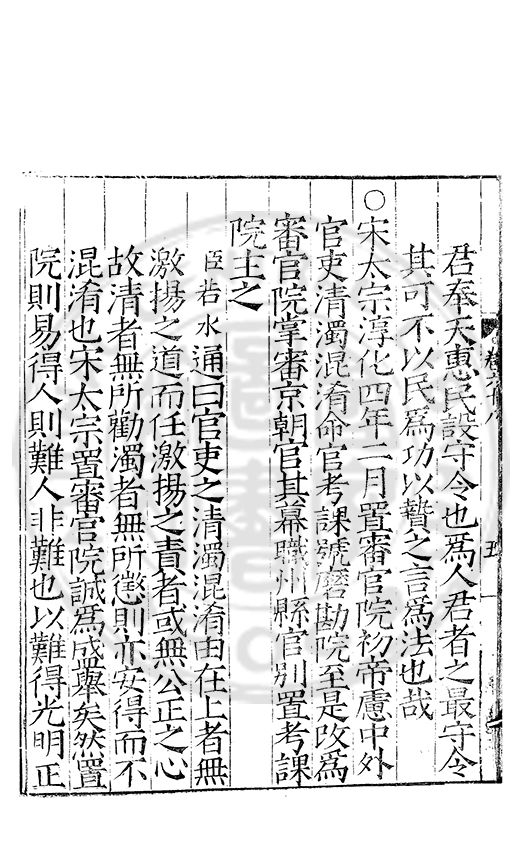 君奉天惠民設守令也爲人君者之最守令
其可不以民爲功以贄之言爲法也哉
○宋太宗淳化四年二月置審官院初帝慮中外
官吏清濁混淆命官考課號磨勘院至是改爲
審官院掌審京朝官其幕職州縣官別置考課
院主之
臣若水通曰官吏之清濁混淆由在上者無
激揚之道而任激揚之責者或無公正之心
故清者無所勸濁者無所懲則亦安得而不
混淆也宋太宗置審官院誠爲盛舉矣然置
院則易得人則難人非難也以難得光明正